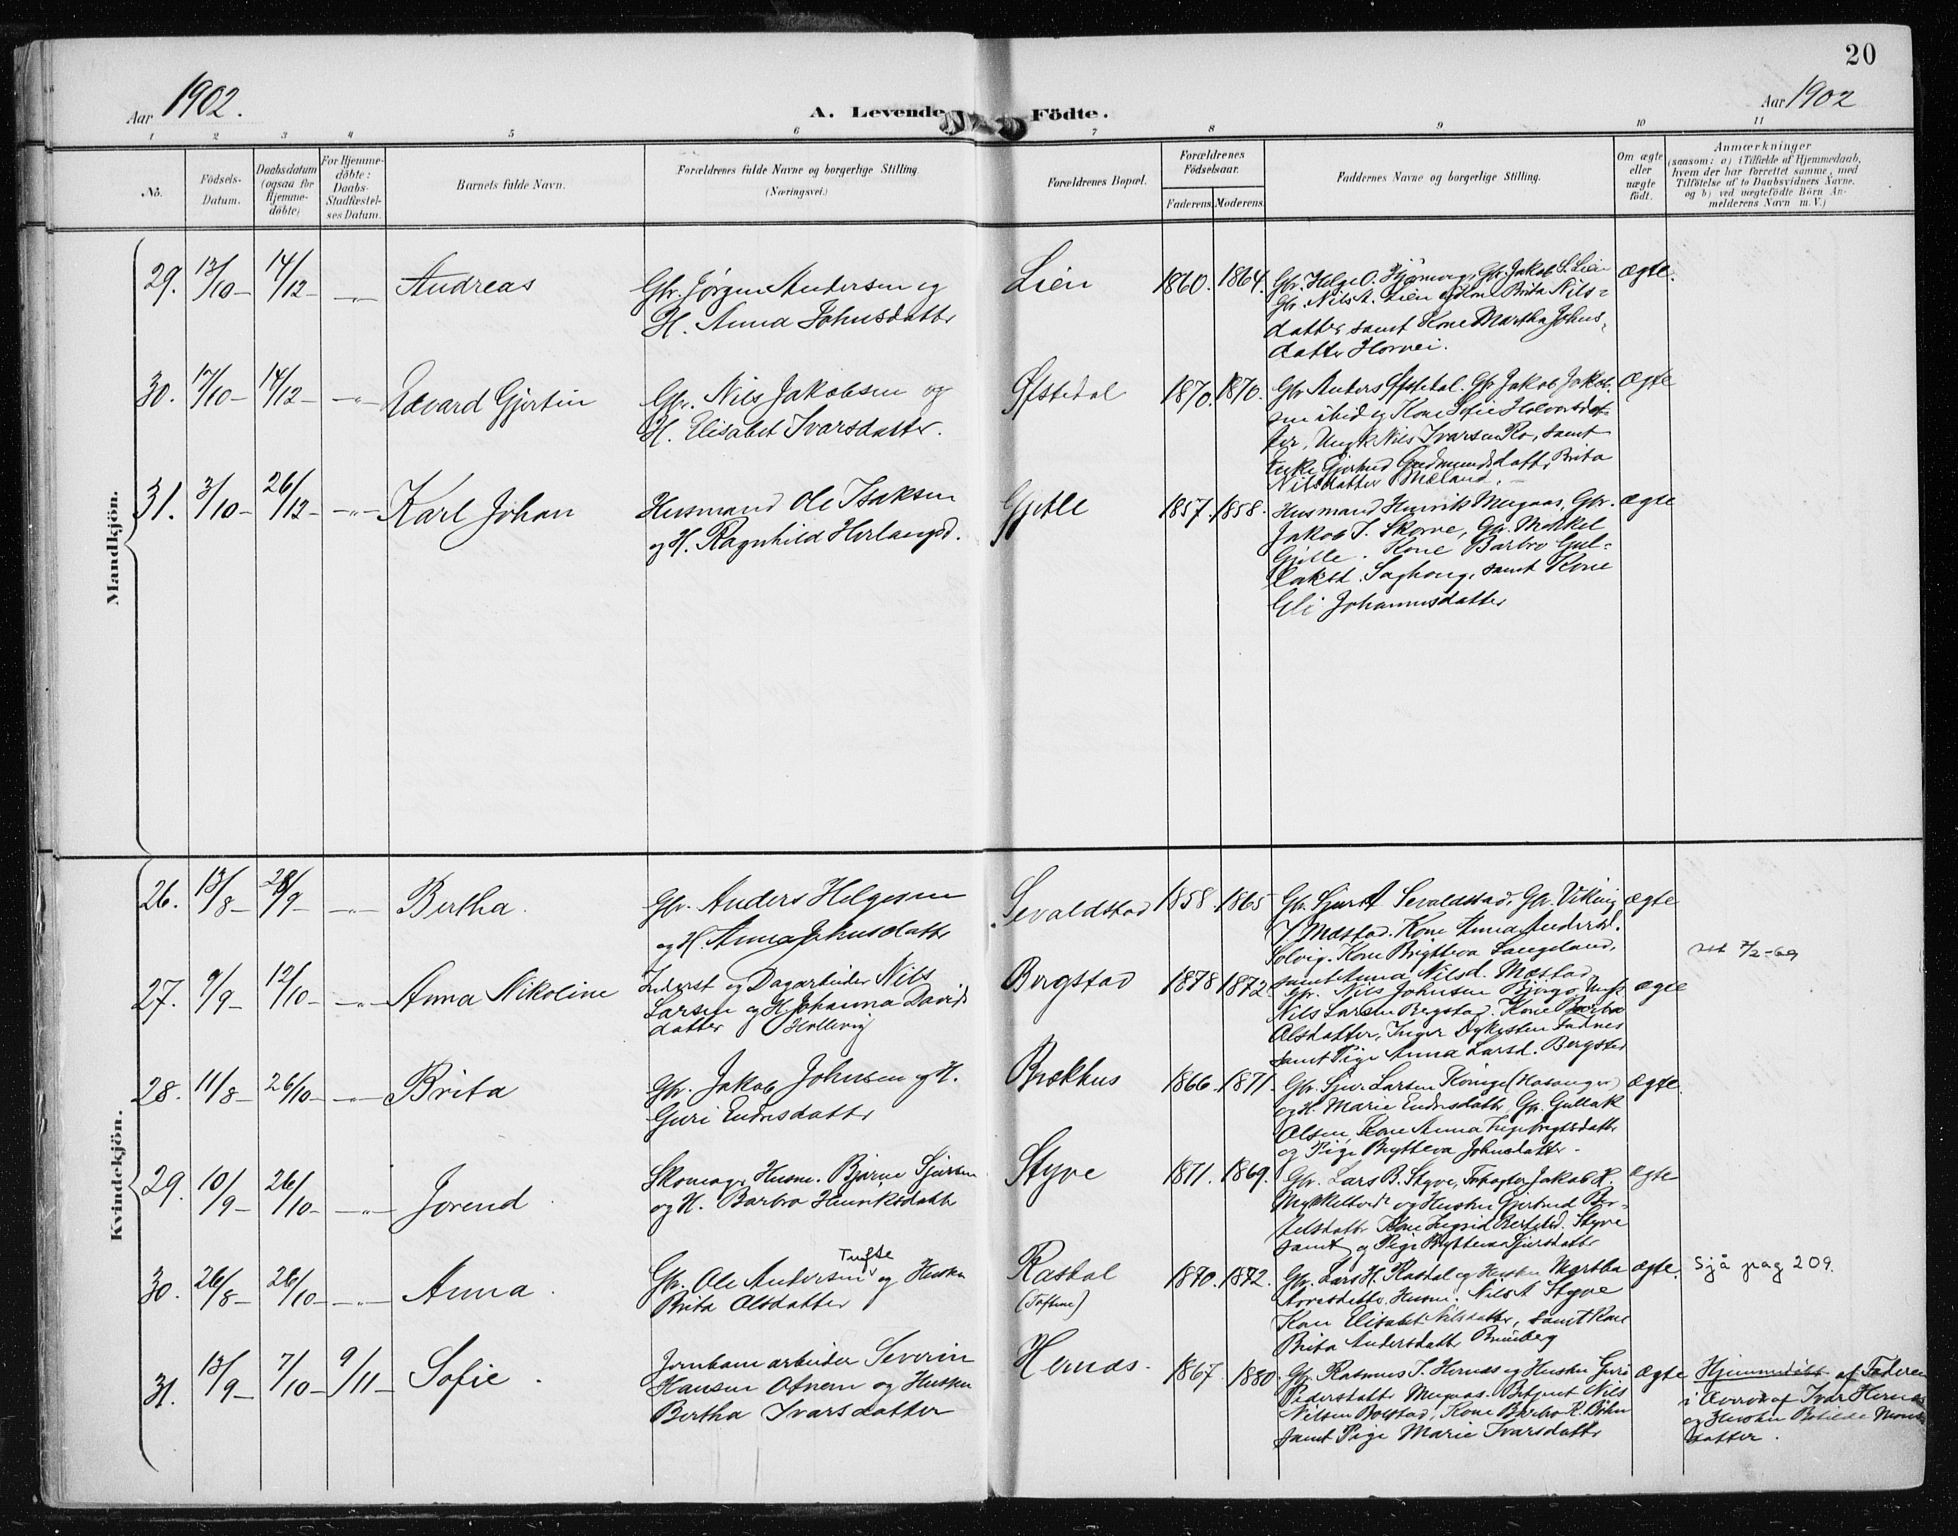 20
Aar 1902.
A. Levende Födte.
Aar 1902
1 2 3 4 5 6 7 8 9 10 11
No.
Födsels-Datum.
Daabsdatum (ogsaa for Hjemme-döbte)
For Hjemme-döbte: Daabs-Stadfæstel-ses Datum.
Barnets fulde Navn.
Forældrenes fulde Navne og borgerlige Stilling.
(Næringsvei.)
Forældrenes Bopæl.
Forældrenes Födselsaar.
Faderens. Moderens.
Faddernes Navne og borgerlige Stilling.
Om ægte eller uægte födt.
Anmærkninger
(saasom: a) i Tilfælde af Hjemmedaab,
hvem der har forrettet samme, med
Tilföielse af to Daabsvidners Navne,
og b) ved uægtefödte Börn An-
melderens Navn m. V.)
Mandkjön.
29. 13/10 14/12 -"- Andreas
Gbr. Jørgen Andersen og
H. Anna Johnsdatter
Lien 1860. 1864.
Gbr. Helge O. Gbr. Jakob S. Lien
Gbr. Nils A. Lien Kone Brita Nils=
datter, samt Kone Martha Johns=
datter Horvei.
ægte.
30. 17/10 14/12 -"- Edvard Gjertin
Gbr. Nils Jakobsen og
H. Elisabet Ivarsdatter.
Øfstedal 1870. 1870.
Gbr Anders Øfstedal. Gbr Jakob Jakob
sen ibid og Kone Sofie
ter, Ungk Nils Ivarsen Ro, samt
Enke Gjertrud Gudmundsdatter, Brita
Nilsdatter Mæland.
ægte
31. 3/10 26/12 -"- Karl Johan
Husmand Ole Isaksen
og H. Ragnhild Herlaugsd.
Gjelle 1857. 1858.
Husmand Henrik Mugaas, Gbr.
Jakob I. Skorve, Gbr. Markel
Gjelle. Kone Barbro Gul=
laksd. Saghaug, samt Kone
Eli Johannesdatter
ægte
Kvindekjön.
26. 13/8 28/9 -"- Bertha.
Gbr. Anders Helgesen
og H. Anna Johnsdatter
Sevaldstad 1858. 1865
Gbr. Sjur A Sevaldstad, Gbr. Viking
I Mæstad. Kone Anna Andersd.
Solvig. Kone Brytteva Langeland,
samt Anna Nilsd. Mæstad
ægte
27. 9/9 12/10 -"- Anna Nikoline
Inderst og Dagarbeider Nils
Larsen og H Johanna Davids
datter Hollevig
Bergstad 1878 1872
Gbr. Nils Johnsen Bjørgo, Ungk
Nils Larsen Bergstad. Kone Barbro
Olsdatter, Inger Dykesten Fadnes
samt Pige Anna Larsd. Bergstad
ægte
7/2-69
28. 11/8 26/10 -"- Brita
Gbr. Jakob Johnsen og H.
Guri Endresdatter
Brækhus 1866. 1871.
Gbr. Sjur Larsen Könige (Hosanger)
og H. Marie Endresdatter, Gbr. Gullak
Olsen, Kone Anna Ingebrigtsdatter
og Pige Brytteva Johnsdatter.
ægte
29. 10/9 26/10 -"- Jorend
Skomager Husm. Bjarne Sjursen
og H. Barbro Henriksdatter
Styve 1871. 1869.
Gbr. Lars B. Styve, Jakob K.
og Hustru Gjertrud Ber-
telsdatter Kone Ingrid Bertelsd. Styve
samt og Pige Brytteva Sjursdatter
ægte
30. 26/8 26/10 -"- Anna.
Gbr. Ole Andersen Tufte og Hustru
Brita Olsdatter
Rastal
(Toftene)
1870. 1872.
Gbr. Lars H. Rastal og Hustru Martha
Husm. Nils A Styve
Kone Elisabet Nilsdatter, samt Kone
Brita Andersdatter Brunberg
ægte.
Sjå pag 209.
31. 13/9 7/10 9/11 Sofie.
Jernbanearbeider Severin
Hansen Otnem og Hustru
Bertha Ivarsdatter
Hernæs. 1867. 1880
Gbr. Rasmus I. Hernæs og Hustru Guro
Pedersdatter Mugaas. Betjent Nils
Nilsen Bolstad, Kone Barbro R. Böhn
samt Pige Marie Ivarsdatter
ægte
Hjemmedöbt af Faderen
i Overvær af Ivar Hernæs
og Hustru Botilde Mons
datter.